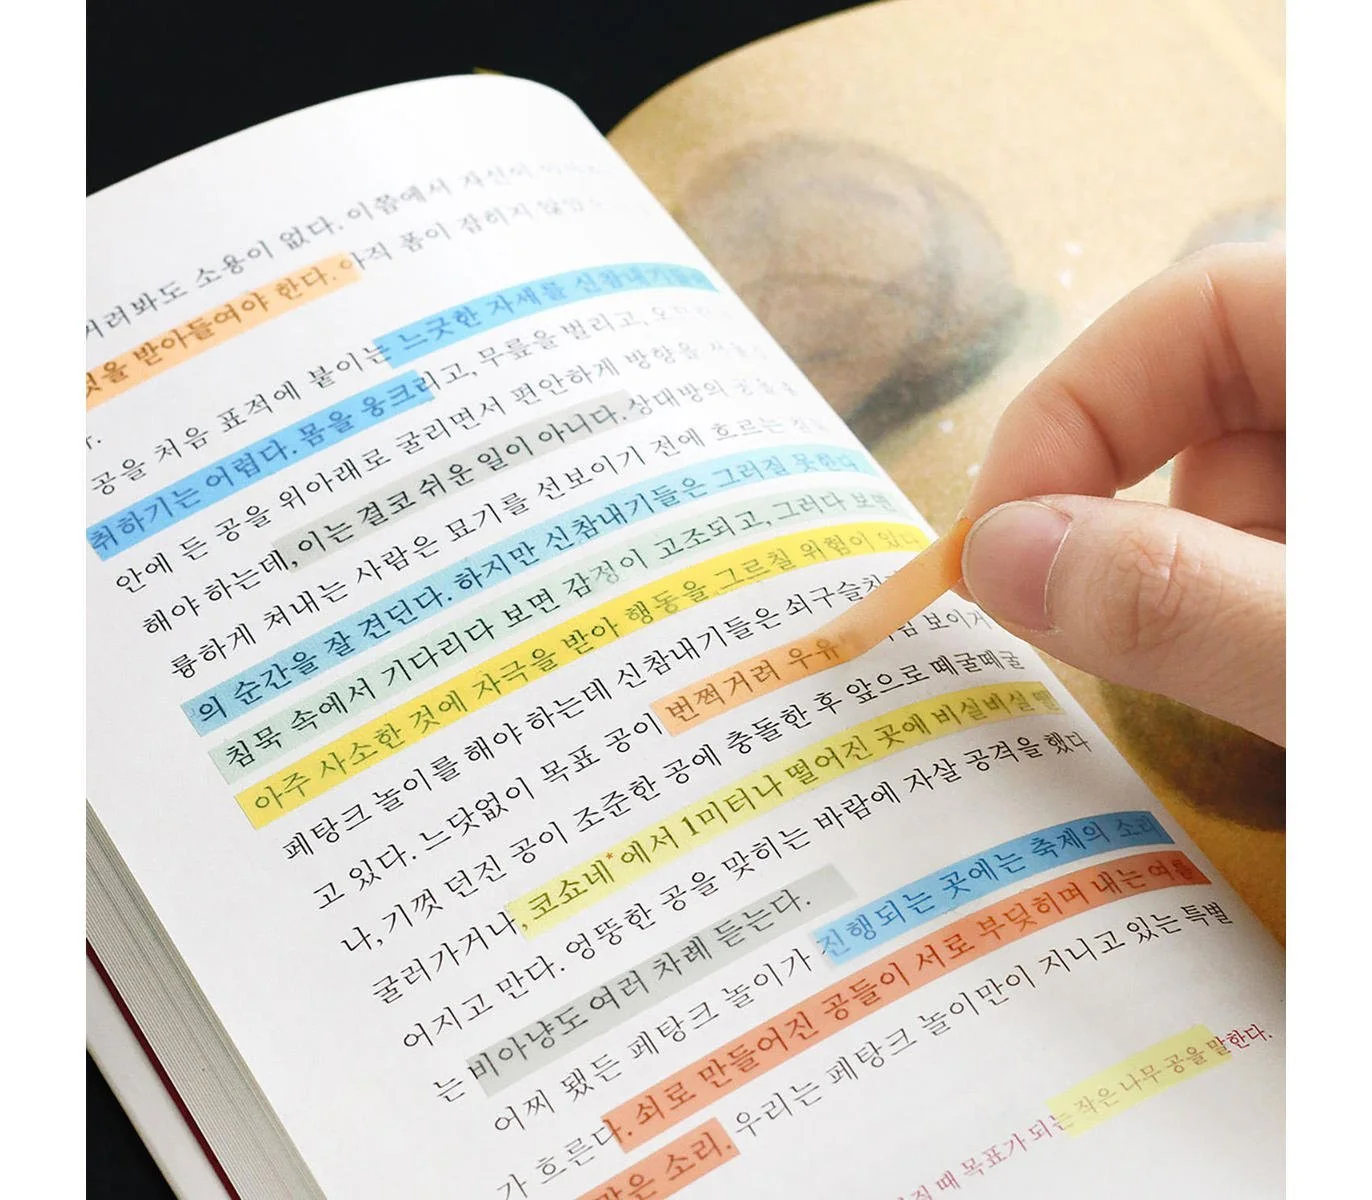 거려봐도 소용이 없다. 이쯤에서 자신이
것을 받아들여야 한다. 아직 폼이 잡히지 않았
공을 처음 표적에 붙이는 느긋한 자세를 신참내기들
취하기는 어렵다. 몸을 웅크리고, 무릎을 벌리고,
안에 든 공을 위아래로 굴리면서 편안하게 방향을
해야 하는데, 이는 결코 쉬운 일이 아니다. 상대방의 공들을
륭하게 쳐내는 사람은 묘기를 선보이기 전에 흐르는
의 순간을 잘 견딘다. 하지만 신참내기들은 그러질 못한다
침묵 속에서 기다리다 보면 감정이 고조되고, 그러다 보면
아주 사소한 것에 자극을 받아 행동을 그르칠 위험이 있다
페탕크 놀이를 해야 하는데 신참내기들은 쇠구슬치
고 있다. 느닷없이 목표 공이 번쩍거려 우유 보이거
나, 기껏 던진 공이 조준한 공에 충돌한 후 앞으로 떼굴떼굴
굴러가거나, 코쇼네*에서 1미터나 떨어진 곳에 비실비실
어지고 만다. 엉뚱한 공을 맞히는 바람에 자살 공격을 했다
는 비아냥도 여러 차례 듣는다.
어찌 됐든 페탕크 놀이가 진행되는 곳에는 축제의 소리
가 흐른다. 쇠로 만들어진 공들이 서로 부딪히며 내는 여름
같은 소리. 우리는 페탕크 놀이만이 지니고 있는 특별
때 목표가 되는 작은 나무 공을 말한다.